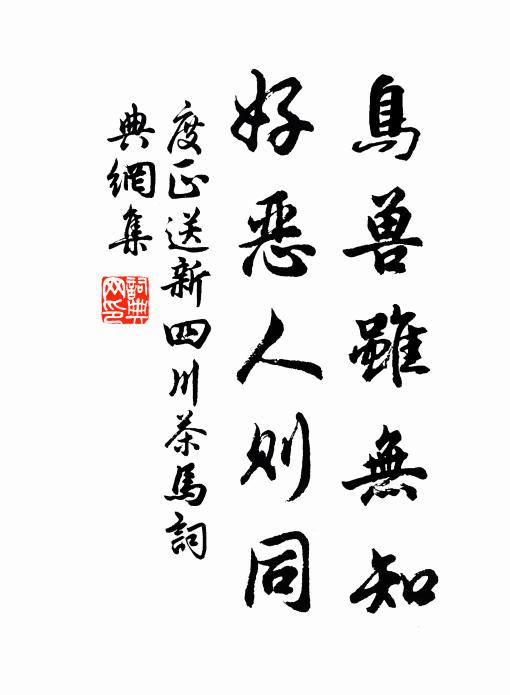 鳥獸雖無知
好惡人則同
度正送新四川茶馬詞
典網集
詞典網印